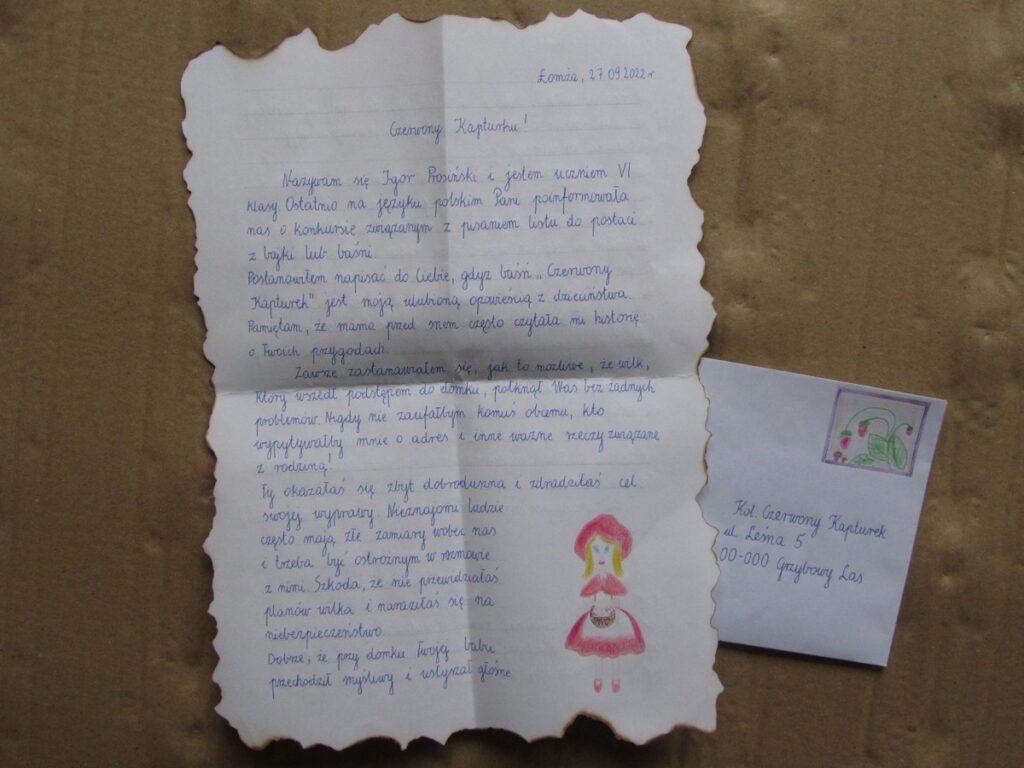 Łomża, 27 09 2022 r
Czerwony Kapturku!
Nazywam się Igor Prosiński i jestem uczniem VI
klasy. Ostatnio na języku polskim Pani poinformowała
nas o konkursie związanym z pisaniem listu do postaci
z bajki lub baśni.
Postanowiłem napisać do Ciebie, gdyż baśń „Czerwony
Kapturek" jest moją ulubioną opowieścią z dzieciństwa.
Pamiętam, że mama przed snem często czytała mi historię
o Twoich przygodach.
Zawsze zastanawiałem się, jak to możliwe, że wilk,
który wszedł podstępem do domku, połknął Was bez żadnych
problemów. Nigdy nie zaufałbym komuś obcemu, kto
wypytywałby mnie o adres i inne ważne rzeczy związane
z rodziną!
Ty okazałaś się zbyt dobroduszna i zdradziłaś cel
swojej wyprawy. Nieznajomi ludzie
często mają złe zamiary wobec nas
i trzeba być ostrożnym w rozmowie
z nimi. Szkoda, że nie przewidziałaś
planów wilka i naraziłaś się na
niebezpieczeństwo.
Dobrze, że przy domku Twojej babci
przechodził myśliwy i usłyszał głośne
Kol. Czerwony Kapturek
ul. Leśna 5
00-000 Grzybowy Las